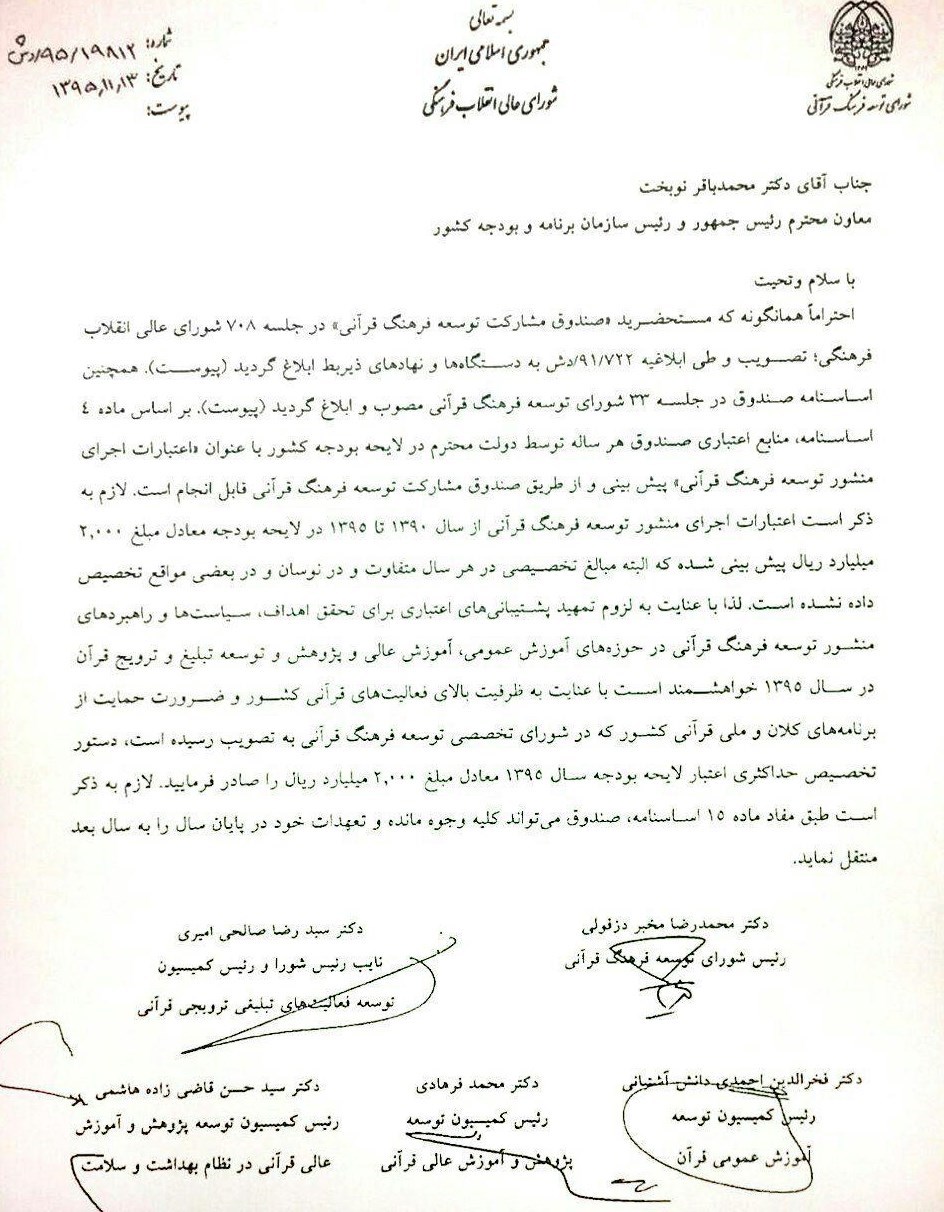 بسمه تعالی
جمهوری اسلامی ایران
شورای عالی انقلاب فرهنگی
شورای عالی انقلاب فرهنگی
شورای توسعه فرهنگ قرآنی
شماره: ۹۵/۱۹۸۱۲/دش
تاریخ: ۱۳۹۵,۱۱,۱۳
پیوست:
جناب آقای دکتر محمدباقر نوبخت
معاون محترم رئیس جمهور و رئیس سازمان برنامه و بودجه کشور
با سلام وتحیت
احتراماً همانگونه که مستحضرید «صندوق مشارکت توسعه فرهنگ قرآنی» در جلسه ۷۰۸ شورای عالی انقلاب
فرهنگی؛ تصویب و طی ابلاغیه ۹۱/۷۲۲/دش به دستگاه‌ها و نهادهای ذیربط ابلاغ گردید (پیوست). همچنین
اساسنامه صندوق در جلسه ۳۳ شورای توسعه فرهنگ قرآنی مصوب و ابلاغ گردید (پیوست). بر اساس ماده ٤
اساسنامه، منابع اعتباری صندوق هر ساله توسط دولت محترم در لایحه بودجه کشور با عنوان «اعتبارات اجرای
منشور توسعه فرهنگ قرآنی» پیش بینی و از طریق صندوق مشارکت توسعه فرهنگ قرآنی قابل انجام است. لازم به
ذکر است اعتبارات اجرای منشور توسعه فرهنگ قرآنی از سال ۱۳۹۰ تا ۱۳۹۵ در لایحه بودجه معادل مبلغ ۲,۰۰۰
میلیارد ریال پیش بینی شده که البته مبالغ تخصیصی در هر سال متفاوت و در نوسان و در بعضی مواقع تخصیص
داده نشده است. لذا با عنایت به لزوم تمهید پشتیبانی‌های اعتباری برای تحقق اهداف، سیاست‌ها و راهبردهای
منشور توسعه فرهنگ قرآنی در حوزه‌های آموزش عمومی، آموزش عالی و پژوهش و توسعه تبلیغ و ترویج قرآن
در سال ۱۳۹۵ خواهشمند است با عنایت به ظرفیت بالای فعالیت‌های قرآنی کشور و ضرورت حمایت از
برنامه‌های کلان و ملی قرآنی کشور که در شورای تخصصی توسعه فرهنگ قرآنی به تصویب رسیده است، دستور
تخصیص حداکثری اعتبار لایحه بودجه سال ۱۳۹۵ معادل مبلغ ۲,۰۰۰ میلیارد ریال را صادر فرمایید. لازم به ذکر
است طبق مفاد ماده ۱۵ اساسنامه، صندوق می‌تواند کلیه وجوه مانده و تعهدات خود در پایان سال را به سال بعد
منتقل نماید.
دکتر محمدرضا مخبر دزفولی
رئیس شورای توسعه فرهنگ قرآنی
دکتر سید رضا صالحی امیری
نایب رئیس شورا و رئیس کمیسیون
توسعه فعالیت‌های تبلیغی ترویجی قرآنی
دکتر فخرالدین احمدی دانش آشتیانی
رئیس کمیسیون توسعه
آموزش عمومی قرآن
دکتر محمد فرهادی
رئیس کمیسیون توسعه
پژوهش و آموزش عالی قرآنی
دکتر سید حسن قاضی زاده هاشمی
رئیس کمیسیون توسعه پژوهش و آموزش
عالی قرآنی در نظام بهداشت و سلامت